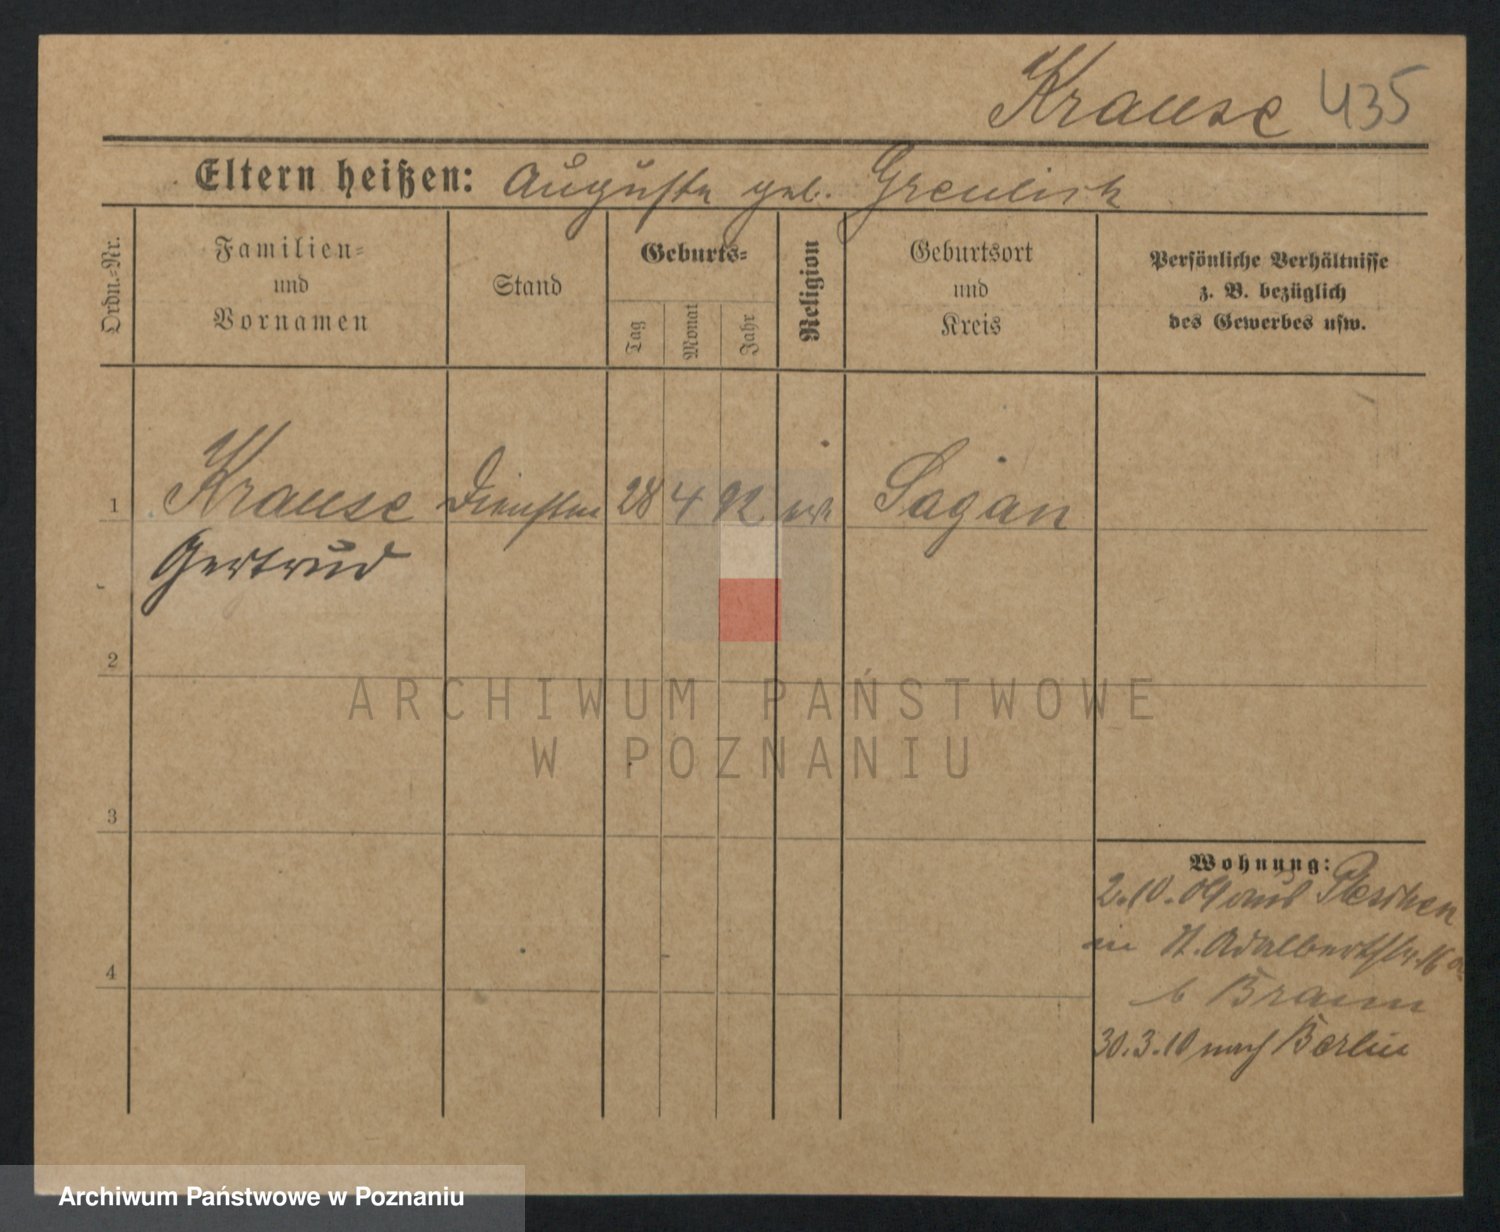 Krause 435
Eltern heißen: Auguste geb. Greulich
Ordn.-Nr.
Familien-
und
Vornamen
Stand
Geburts-
Tag
Monat
Jahr
Religion
Geburtsort
und
Kreis
Persönliche Verhältnisse
z. B. bezüglich
des Gewerbes usw.
1 Krause 28 4 92 ev Sagan
Gertrud
2
3
4
Wohnung:
2.10.09 aus Pleschen
in St. Adalbertstr. 16a
b Braun
30.3.10 nach Berlin
ARCHIWUM PAŃSTWOWE
W POZNANIU
Archiwum Państwowe w Poznaniu